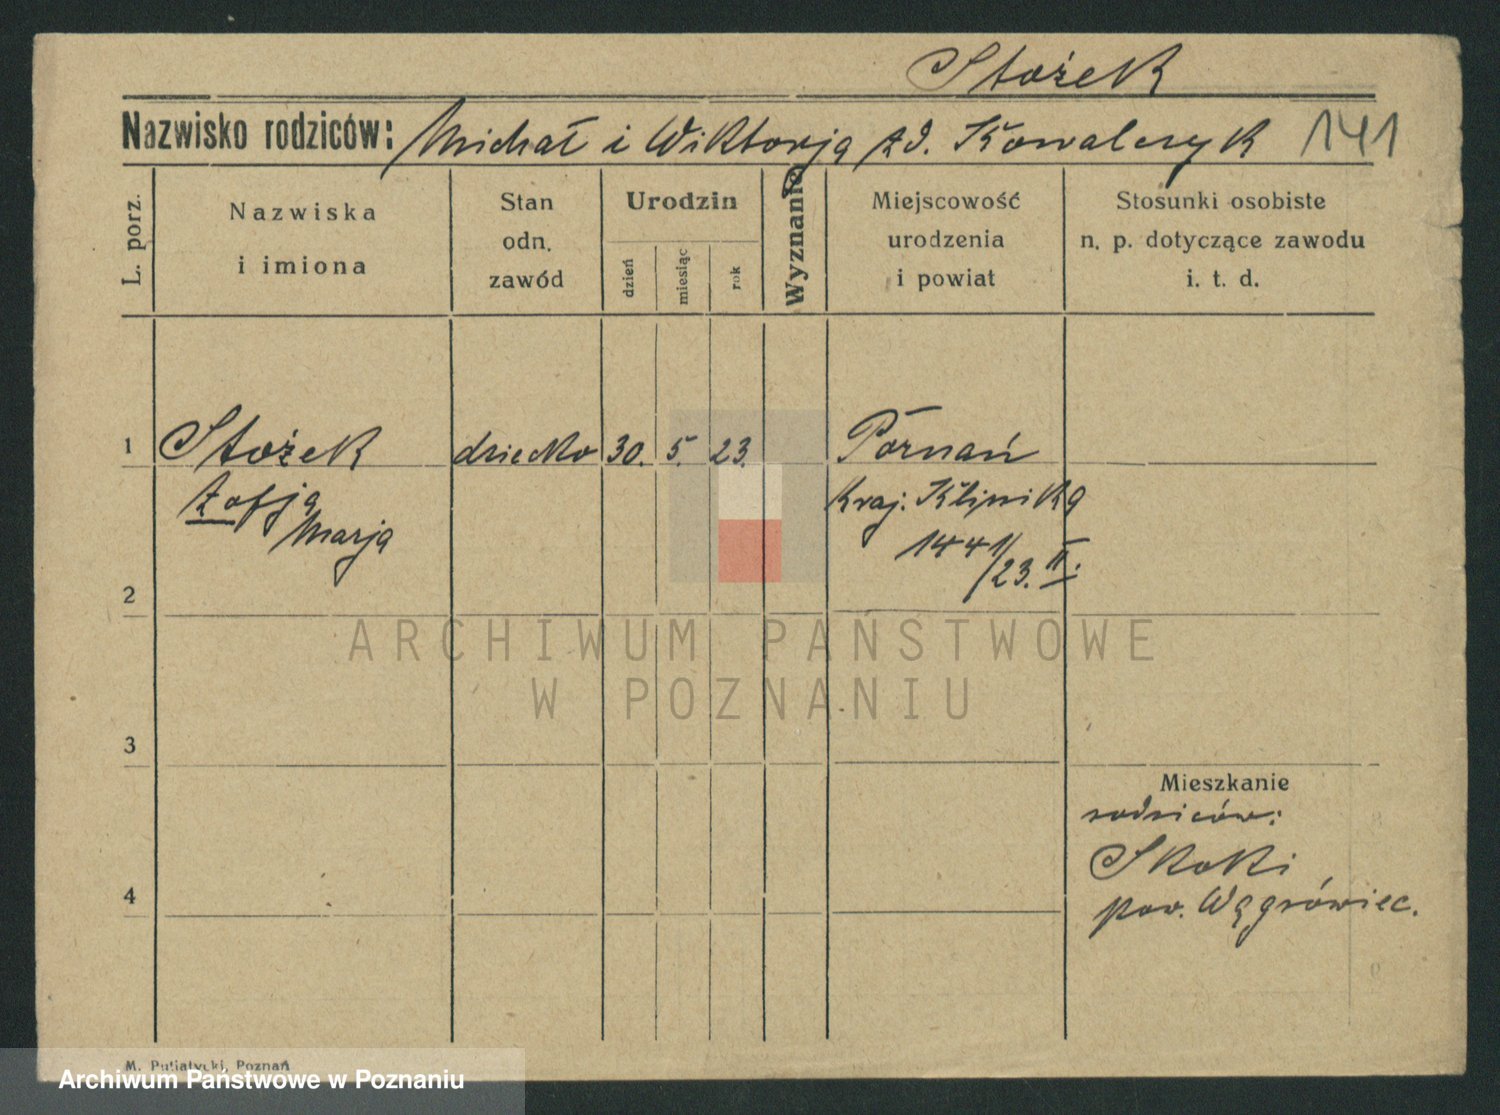 Stożek
Nazwisko rodziców: Michał i Wiktorja zd. Kowalczyk 141
L. porz.
Nazwiska
i imiona
Stan
odn.
zawód
Urodzin
dzień
miesiąc
rok
Wyznanie
Miejscowość
urodzenia
i powiat
Stosunki osobiste
n. p. dotyczące zawodu
i. t. d.
1 Stożek dziecko 30. 5. 23. Poznań
Zofja Kraj. Klinika
Marja 1441/23. II.
2
ARCHIWUM PAŃSTWOWE
W POZNANIU
3
Mieszkanie
rodziców:
Skoki
4 pow. Wągrówiec.
M. Putiatycki, Poznań
Archiwum Państwowe w Poznaniu